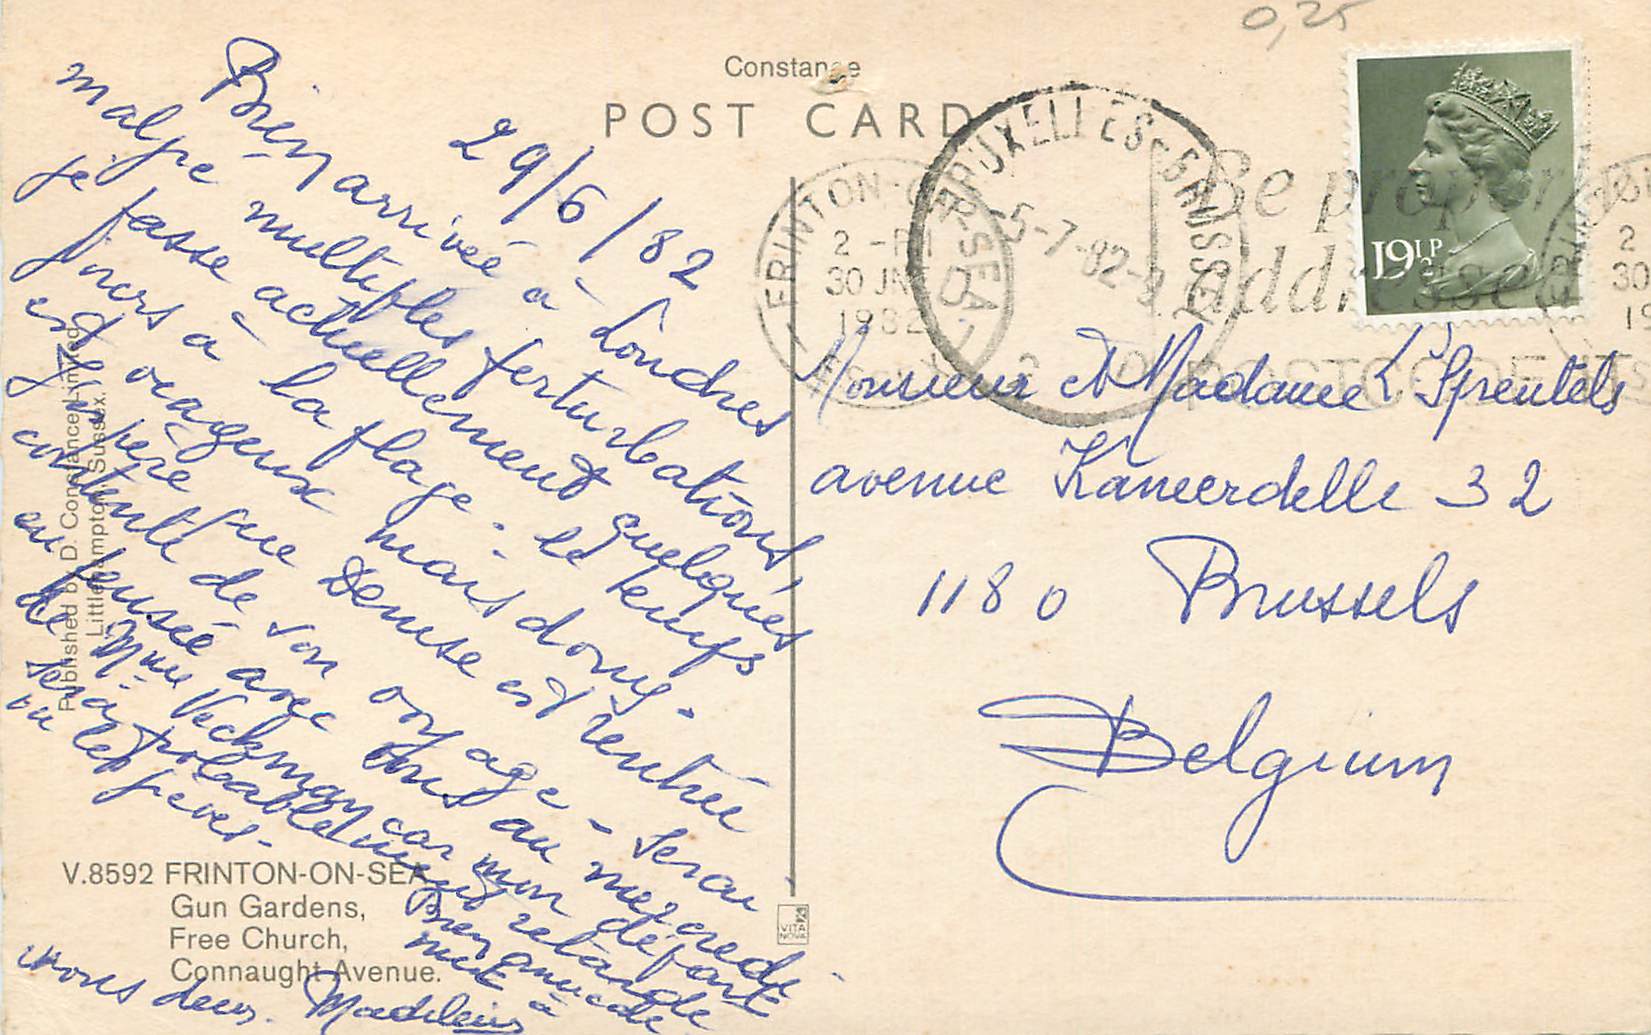 0,25
Constance
POST CARD
29/6/82
Bien arrivée à Londres
malgré multiples perturbations,
je passe actuellement quelques
jours à la plage. Le temps
est orageux mais doux.
J'espère que Denise est rentrée
contente de son voyage. Serai
en pensée avec vous au mercredi
de Mme Veckman car mon départ
sera probablement retardé
vu les grèves.
Bien amicale
ment à
vous deux. Madeleine
Published by D. Constance Limited
Littlehampton, Sussex.
V.8592 FRINTON-ON-SEA
Gun Gardens,
Free Church,
Connaught Avenue.
VITA
NOVA
FRINTON-ON-SEA
2 - PM
30 JNE
1982
ESSEX
BRUXELLES - BRUSSEL
-5-7-82-
Be properly
addressed
POSTCODE
19½P
Monsieur et Madame Sprentels
avenue Kamerdelle 32
1180 Brussels
Belgium